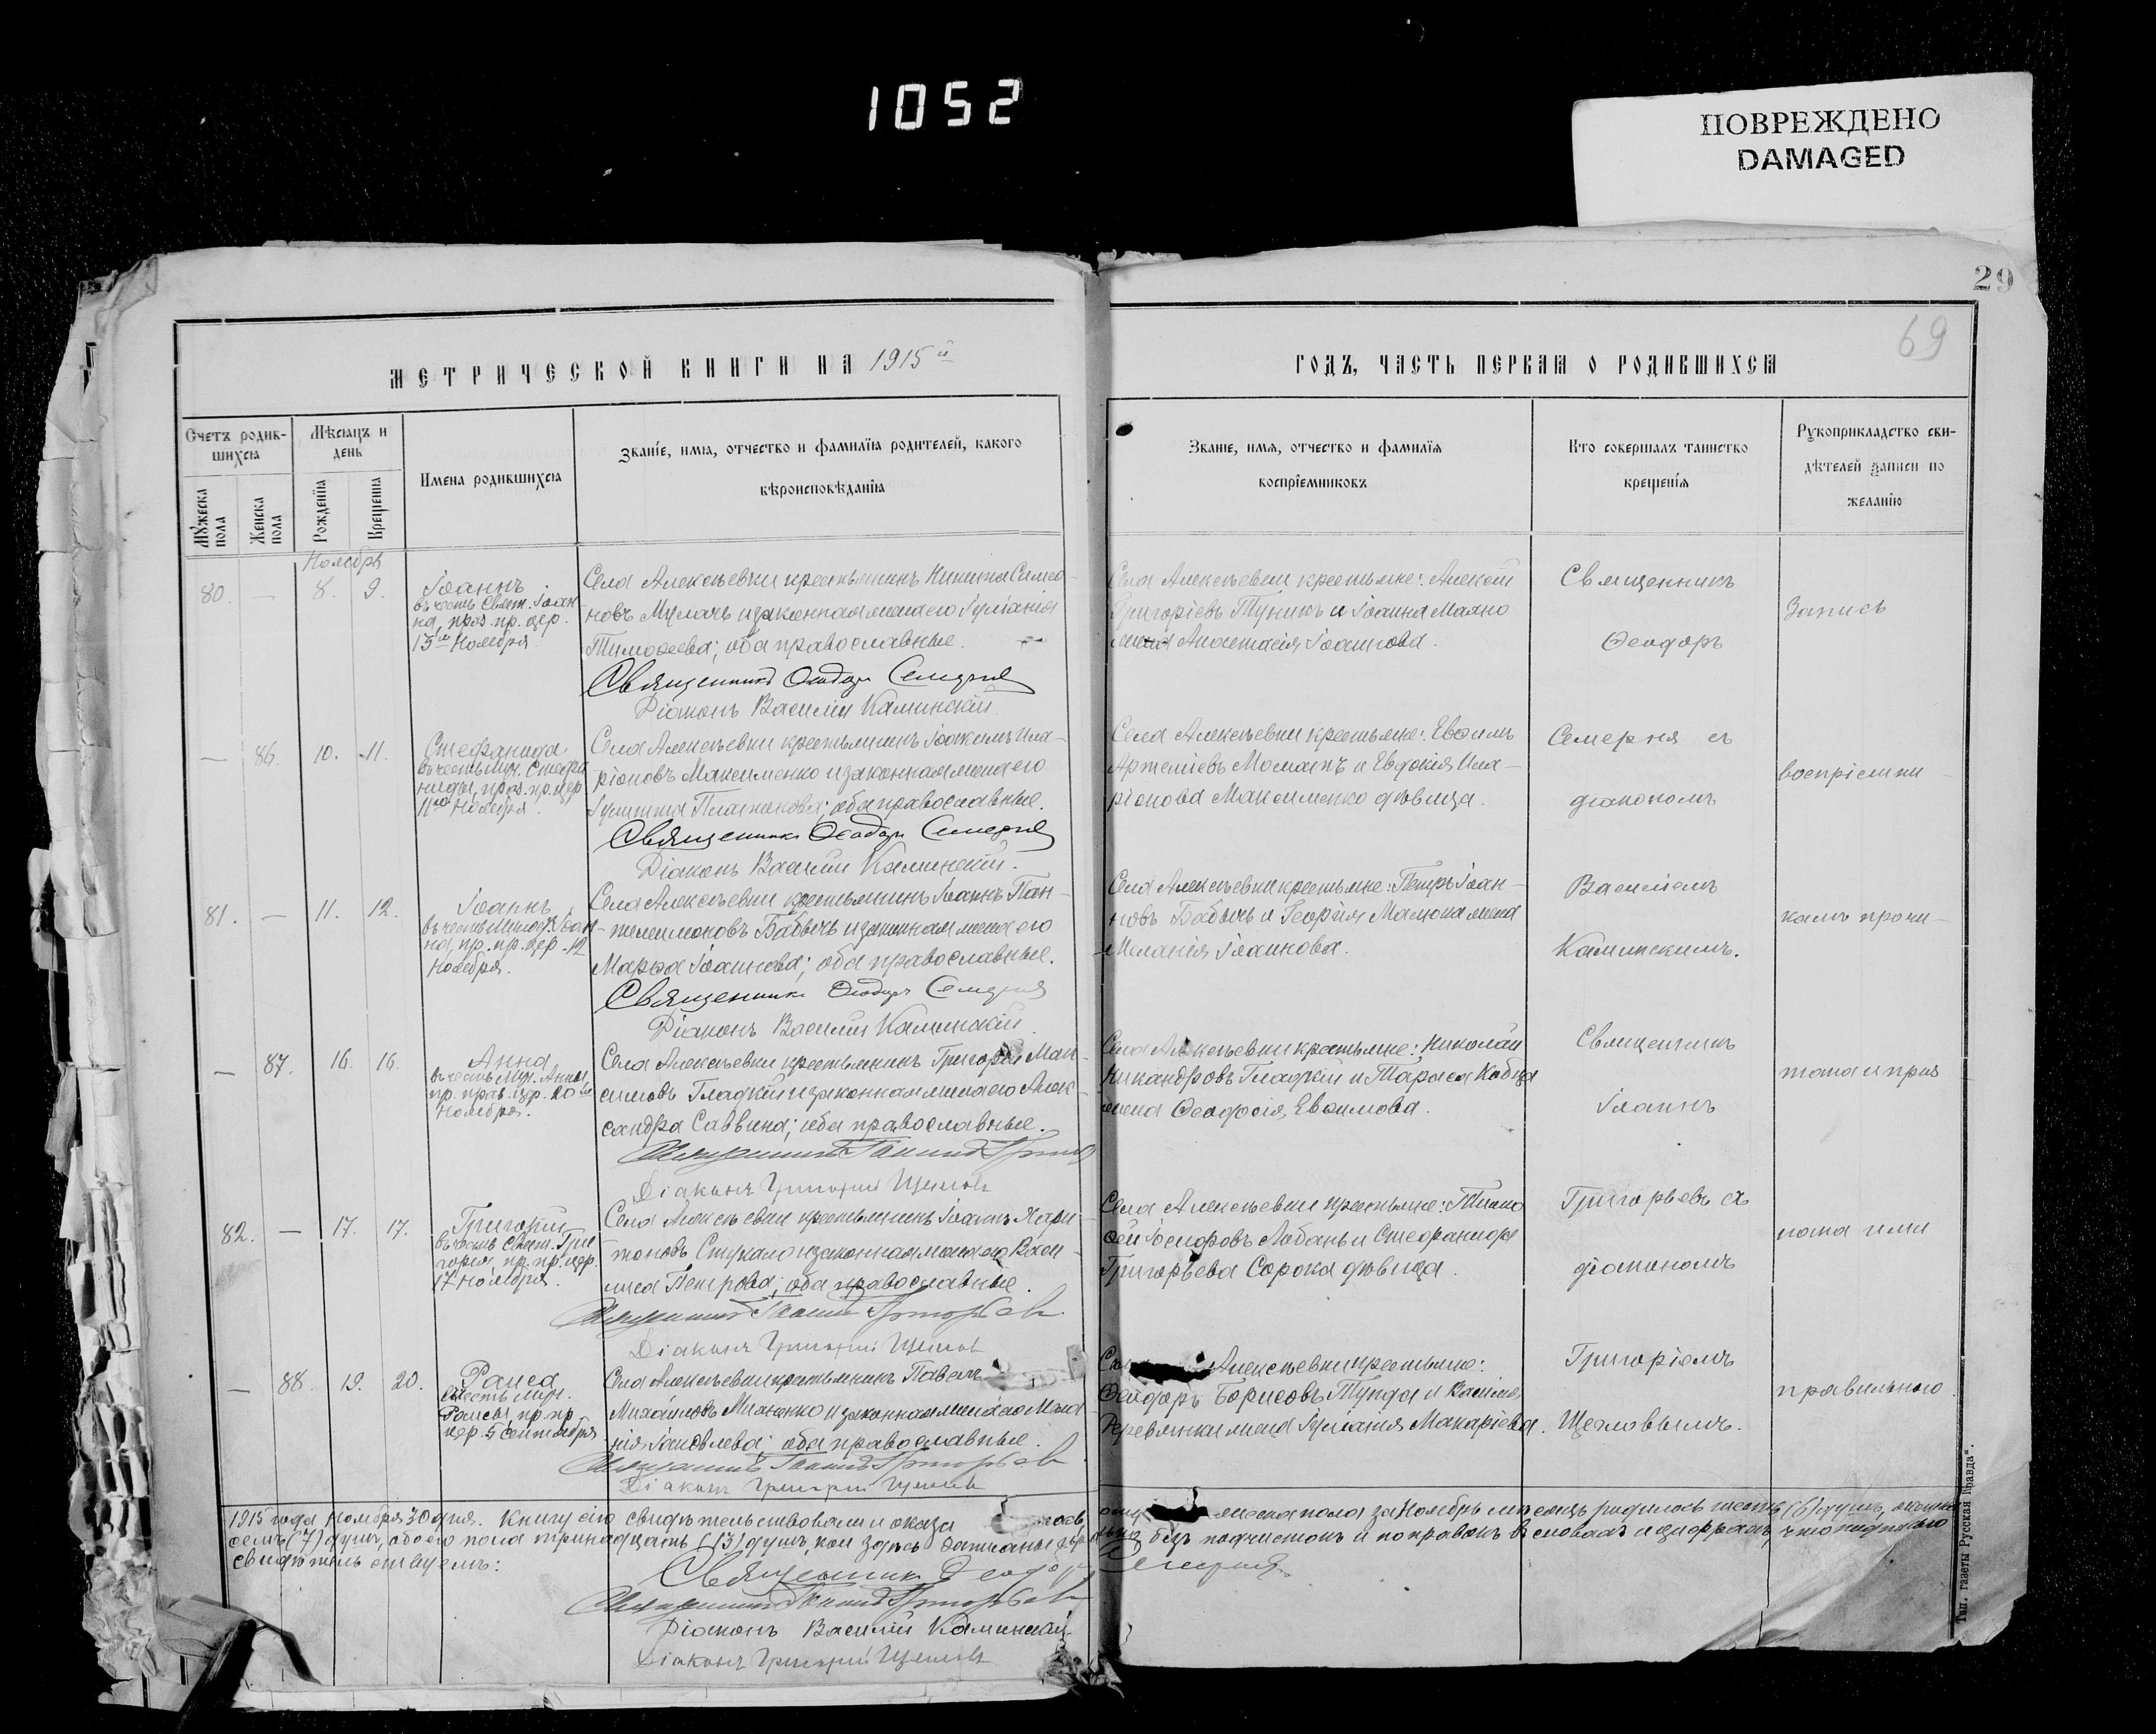 1052
ПОВРЕЖДЕНО
DAMAGED
29
69
МЕТРИЧЕСКОЙ КНИГИ НА 1915й
ГОДЪ, ЧАСТЬ ПЕРВАЯ О РОДИВШИХСЯ
Счетъ родив-
шихся
Мѣсяцъ и
день
Мужеска
пола
Женска
пола
Рожденїя
Крещенїя
Имена родившихся
Званїе, имя, отчество и фамилїя родителей, какого
вѣроисповѣданїя
Званїе, имя, отчество и фамилїя
воспрїемниковъ
Кто совершалъ таинство
крещенїя
Рукоприкладство сви-
дѣтелей записи по
желанїю
Ноябрь
80. — 8. 9.
Іоаннъ
въ честь Свят. Іоан
на, праз. пр. цер.
13го Ноября
Села Алексѣевки крестьянинъ Никита Симео-
новъ Мулачъ и законная жена его Іуліанія
Тимоѳеева; оба православные.
Священникъ Ѳеодоръ Семерня
Діаконъ Василій Каминскій
Села Алексѣевки крестьяне: Алексій
Григоріевъ Тупикъ и Іоанна Махно
жена Анастасія Іоаннова.
Священникъ
Ѳеодоръ
Запись
— 86. 10. 11.
Стефанида
въ честь Муч. Стефа
ниды, праз. пр. цер
11го Ноября.
Села Алексѣевки крестьянинъ Іоакимъ Ила-
ріоновъ Максименко и законная жена его
Іулитта Платонова; оба православные.
Священникъ Ѳеодоръ Семерня
Діаконъ Василій Каминскій.
Села Алексѣевки крестьяне: Евѳимъ
Артеміевъ Момотъ и Евдокія Ила-
ріонова Максименко дѣвица.
Семерня съ
діакономъ
воспріемни-
81. — 11. 12.
Іоаннъ
въ честь Милост. Іоан
на, пр. пр. цер. 12
Ноября.
Села Алексѣевки крестьянинъ Іоаннъ Пан-
телеимоновъ Бабычъ и законная жена его
Марѳа Іоаннова; оба православные.
Священникъ Ѳеодоръ Семерня
Діаконъ Василій Каминскій.
Села Алексѣевки крестьяне: Петръ Іоан-
новъ Бабычъ и Георгія Малюка жена
Меланія Іоаннова.
Василіемъ
Каминскимъ.
камъ прочи-
— 87. 16. 16.
Анна
въ честь Муч. Анны,
пр. прав. цер. 20го
Ноября.
Села Алексѣевки крестьянинъ Григорій Мак-
симовъ Гладкій и законная жена его Алек-
сандра Саввина; оба православные.
Священникъ Іоаннъ Григорьевъ
Діаконъ Григорій Щегловъ
Села Алексѣевки крестьяне: Николай
Никандровъ Гладкій и Тараса Кобца
жена Ѳеодосія Евѳимова.
Священникъ
Іоаннъ
тана и приз
82. — 17. 17.
Григорій
въ честь Свят. Гри
горія, пр. пр. цер.
17 Ноября.
Села Алексѣевки крестьянинъ Іоаннъ Хари-
тоновъ Стукало и законная жена его Васи-
лиса Петрова; оба православные.
Священникъ Іоаннъ Григорьевъ
Діаконъ Григорій Щегловъ
Села Алексѣевки крестьяне: Тимо
ѳей Іосифовъ Лабань и Стефанида
Григорьева Сорока дѣвица.
Григорьевъ съ
діакономъ
нана ими
— 88. 19. 20.
Раиса
въ честь Муч.
Раисы, пр. пр
цер. 5 Сентября
Села Алексѣевки крестьянинъ Павелъ
Михайловъ и законная жена его Мела
нія Іаковлева; оба православные.
Священникъ Іоаннъ Григорьевъ
Діаконъ Григорій Щегловъ
Алексѣевки крестьяне:
Ѳеодоръ Борисовъ и Василія
Деревянки жена Іуліанія Макаріева.
Григоріемъ
Щегловымъ.
правильною.
1915 года Ноября 30 дня. Книгу сію свидѣтельствовали и оказа лось, мужеска пола за Ноябрь мѣсяцъ родилось шесть (6) душъ, женска
семь (7) душъ, обоего пола тринадцать (13) душъ, кои здѣсь записаны безъ подчистокъ и поправокъ въ словахъ и цифрахъ, что
свидѣтельствуемъ:
Священникъ Ѳеодоръ Семерня
Священникъ Іоаннъ Григорьевъ
Діаконъ Василій Каминскій
Діаконъ Григорій Щегловъ
Тип. газеты „Русская Правда“.